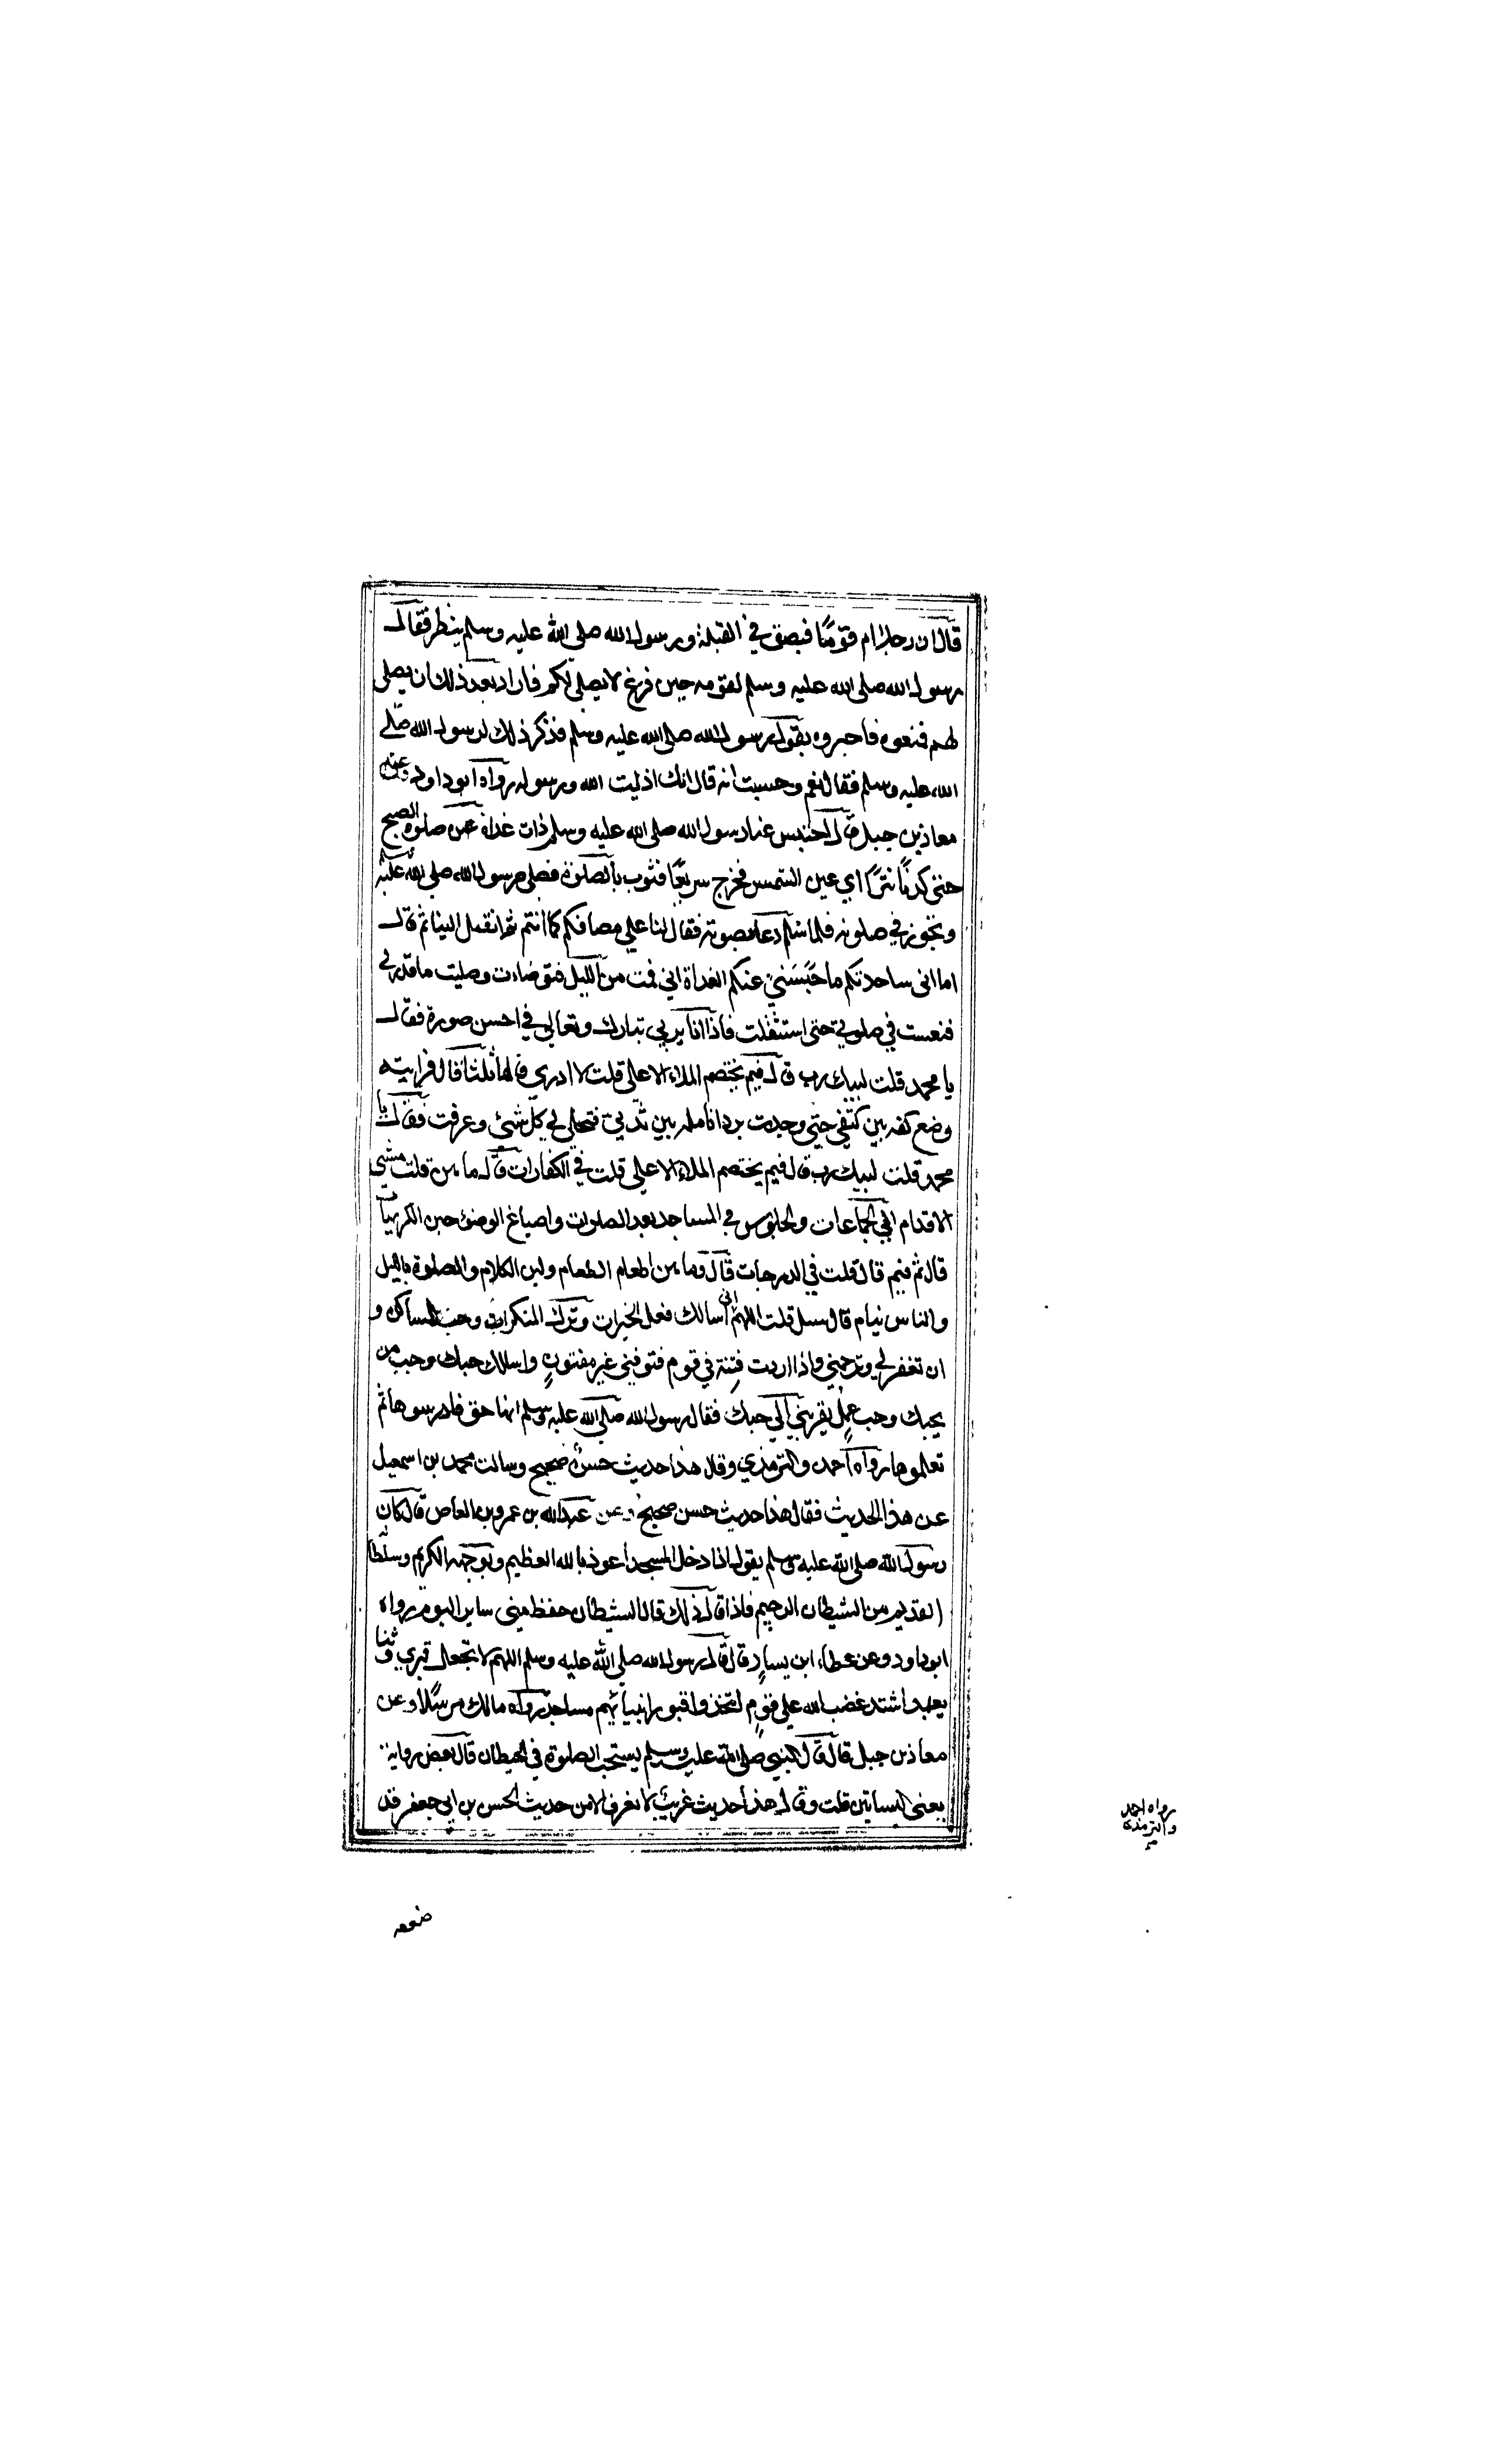 قال ان رجلا ام قوما فبصق في القبلة ورسول الله صلى الله عليه وسلم ينظر فقال
رسول الله صلى الله عليه وسلم لقومه حين فرغ لا يصلي لكم فاراد بعد ذلك ان يصلي
لهم فمنعوه فاخبروه بقول رسول الله صلى الله عليه وسلم فذكر ذلك لرسول الله صلى
الله عليه وسلم فقال نعم وحسبت انه قال انك اذيت الله ورسوله رواه ابو داود وعن
معاذ بن جبل قال احتبس عنا رسول الله صلى الله عليه وسلم ذات غداة عن صلوة الصبح
حتى كدنا نتراآي عين الشمس فخرج سريعا فثوب بالصلوة فصلى رسول الله صلى الله عليه وسلم
وتجوز في صلوته فلما سلم دعا بصوته فقال لنا على مصافكم كما انتم ثم انفتل الينا ثم قال
اما اني ساحدثكم ما حبسني عنكم الغداة اني قمت من الليل فتوضات وصليت ما قدر لي
فنعست في صلوتي حتى استثقلت فاذا انا بربي تبارك وتعالى في احسن صورة فقال
يا محمد قلت لبيك رب قال فيم يختصم الملاء الاعلى قلت لا ادري قالها ثلثا قال فرايته
وضع كفه بين كتفي حتى وجدت برد انامله بين ثديي فتجلى لي كل شئ وعرفت فقال يا
محمد قلت لبيك رب قال فيم يختصم الملاء الاعلى قلت في الكفارات قال ما هن قلت مشي
الاقدام الى الجماعات والجلوس في المساجد بعد الصلوات واصباغ الوضوء حين الكريهات
قال ثم فيم قال قلت في الدرجات قال وما هن اطعام الطعام ولين الكلام والصلوة بالليل
والناس نيام قال سل قلت اللهم اني اسالك فعل الخيرات وترك المنكرات وحب المساكين و
ان تغفر لي وترحمني واذا اردت فتنة في قوم فتوفني غير مفتون واسالك حبك وحب من
يحبك وحب عمل يقربني الى حبك فقال رسول الله صلى الله عليه وسلم انها حق فادرسوها ثم
تعلموها رواه احمد والترمذي وقال هذا حديث حسن صحيح وسالت محمد بن اسمعيل
عن هذا الحديث فقال هذا حديث حسن صحيح وعن عبد الله بن عمرو بن العاص قال كان
رسول الله صلى الله عليه وسلم يقول اذا دخل المسجد اعوذ بالله العظيم وبوجهه الكريم وسلطانه
القديم من الشيطان الرجيم فاذا قال ذلك قال الشيطان حفظ مني ساير اليوم رواه
ابو داود وعن عطاء ابن يسار قال قال رسول الله صلى الله عليه وسلم اللهم لا تجعل قبري وثنا
يعبد اشتد غضب الله على قوم اتخذوا قبور انبيائهم مساجد رواه مالك مرسلا وعن
معاذ بن جبل قال قال النبي صلى الله عليه وسلم يستحب الصلوة في الحيطان قال بعض رواية
يعني البساتين قلت وقال هذا حديث غريب لا نعرفه الا من حديث الحسن بن ابي جعفر قد
رواه احمد
والترمذي
ضعفه